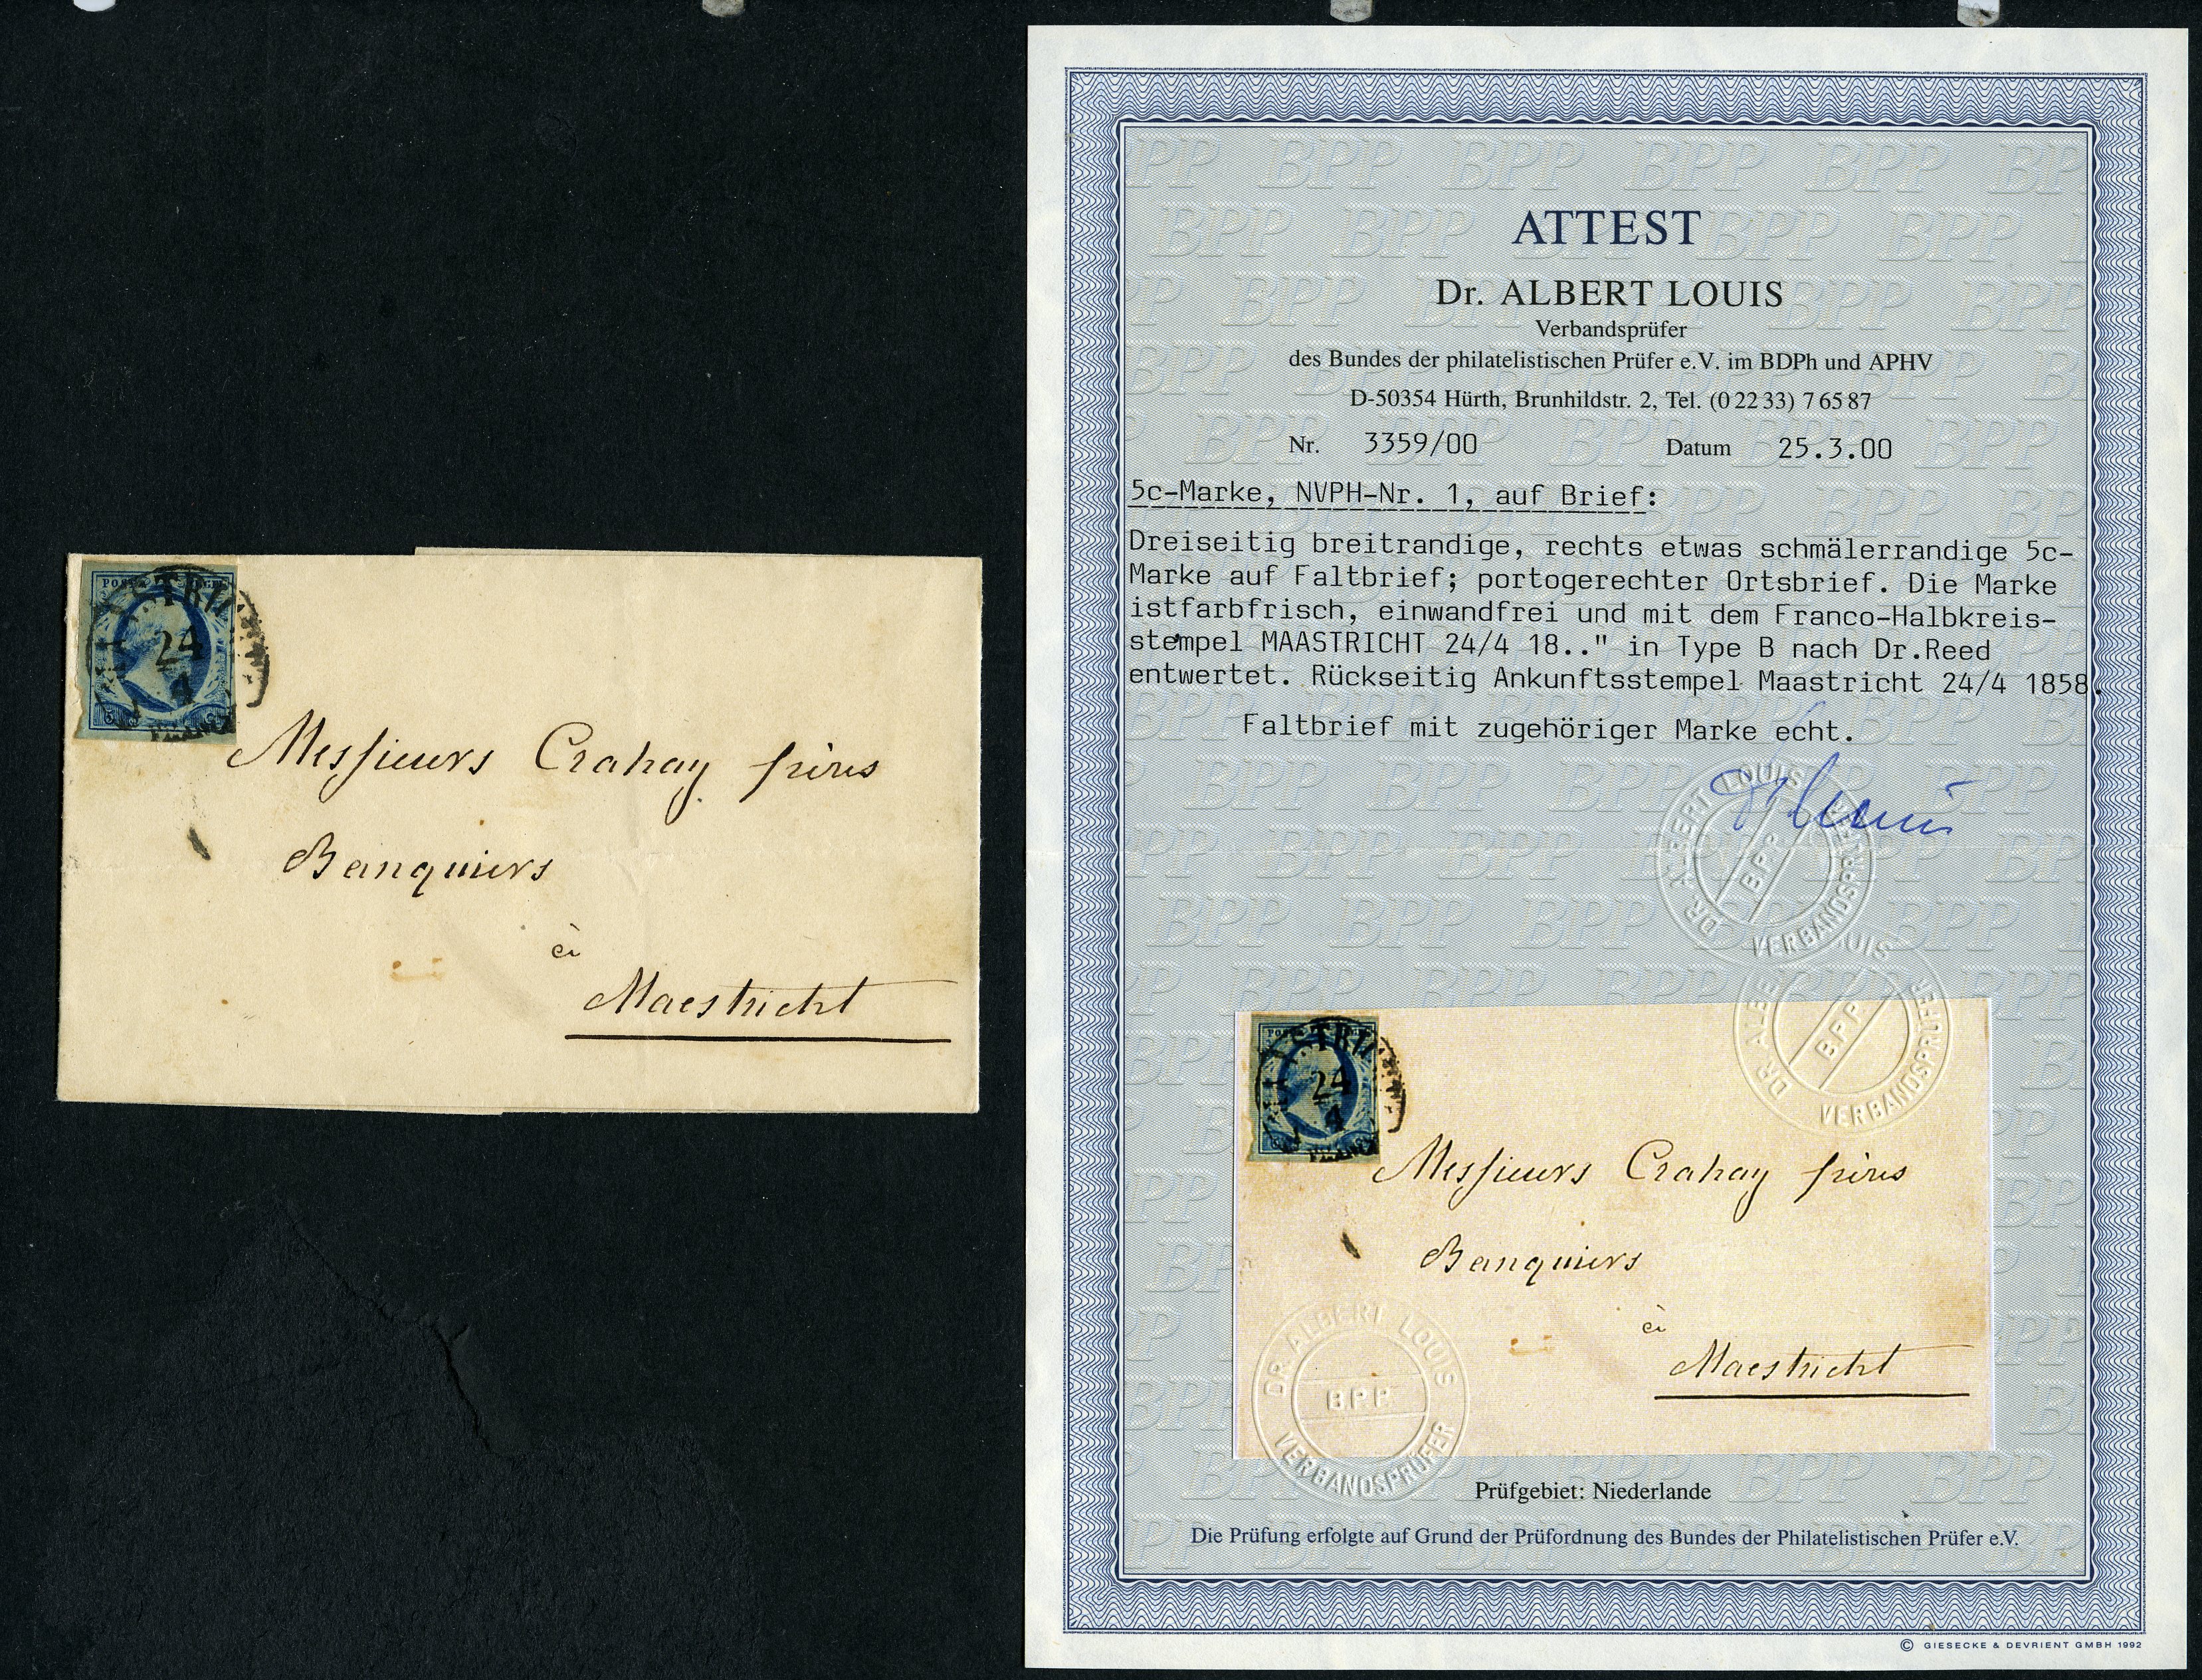 POST ZEGEL
24
4
FRANCO
5 C
Messieurs Crahay frères
Banquiers
à
Maestricht
ATTEST
Dr. ALBERT LOUIS
Verbandsprüfer
des Bundes der philatelistischen Prüfer e.V. im BDPh und APHV
D-50354 Hürth, Brunhildstr. 2, Tel. (0 22 33) 7 65 87
Nr. 3359/00 Datum 25.3.00
5c-Marke, NVPH-Nr. 1, auf Brief:
Dreiseitig breitrandige, rechts etwas schmälerrandige 5c-
Marke auf Faltbrief; portogerechter Ortsbrief. Die Marke
istfarbfrisch, einwandfrei und mit dem Franco-Halbkreis-
stempel MAASTRICHT 24/4 18.." in Type B nach Dr.Reed
entwertet. Rückseitig Ankunftsstempel Maastricht 24/4 1858.
Faltbrief mit zugehöriger Marke echt.
DR. ALBERT LOUIS
B.P.P.
VERBANDSPRÜFER
DR. ALBERT LOUIS
B.P.P.
VERBANDSPRÜFER
24
4
Messieurs Crahay frères
Banquiers
à
Maestricht
DR. ALBERT LOUIS
B.P.P.
VERBANDSPRÜFER
Prüfgebiet: Niederlande
Die Prüfung erfolgte auf Grund der Prüfordnung des Bundes der Philatelistischen Prüfer e.V.
© GIESECKE & DEVRIENT GMBH 1992